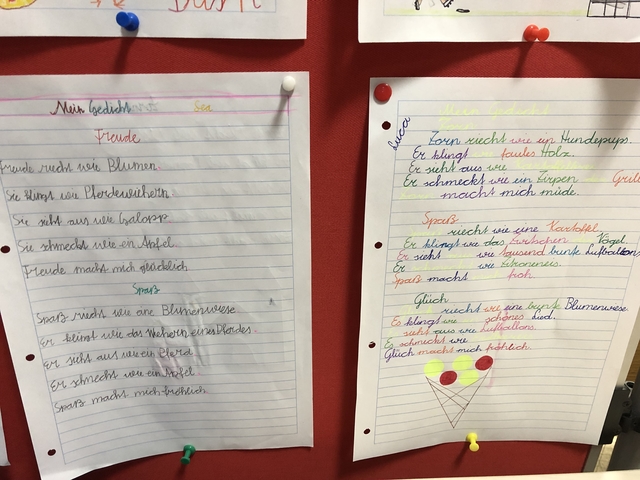 Mein Gedicht
Freude
Freude riecht wie Blumen.
Sie klingt wie Pferdewiehern.
Sie sieht aus wie Galopp
Sie schmeckt wie ein Apfel.
Freude macht mich glücklich
Spaß
Spaß riecht wie eine Blumenwiese
Er klingt wie das Wiehern eines Pferdes.
Er sieht aus wie ein Pferd
Er schmeckt wie ein Apfel.
Spaß macht mich fröhlich
Luca
Zorn riecht wie ein Hundepups.
Er klingt faules Holz.
Er sieht aus wie
Er schmeckt wie ein Zirpen
macht mich müde.
Spaß
riecht wie eine Kartoffel
Er klingt wie das Vögel
Er sieht wie tausend bunte Luftballons
Er wie Zitroneneis.
Spaß macht froh.
Glück
riecht wie eine bunte Blumenwiese
Es klingt wie schönes Lied.
sieht aus wie Luftballons.
Es schmeckt wie
Glück macht mich fröhlich.